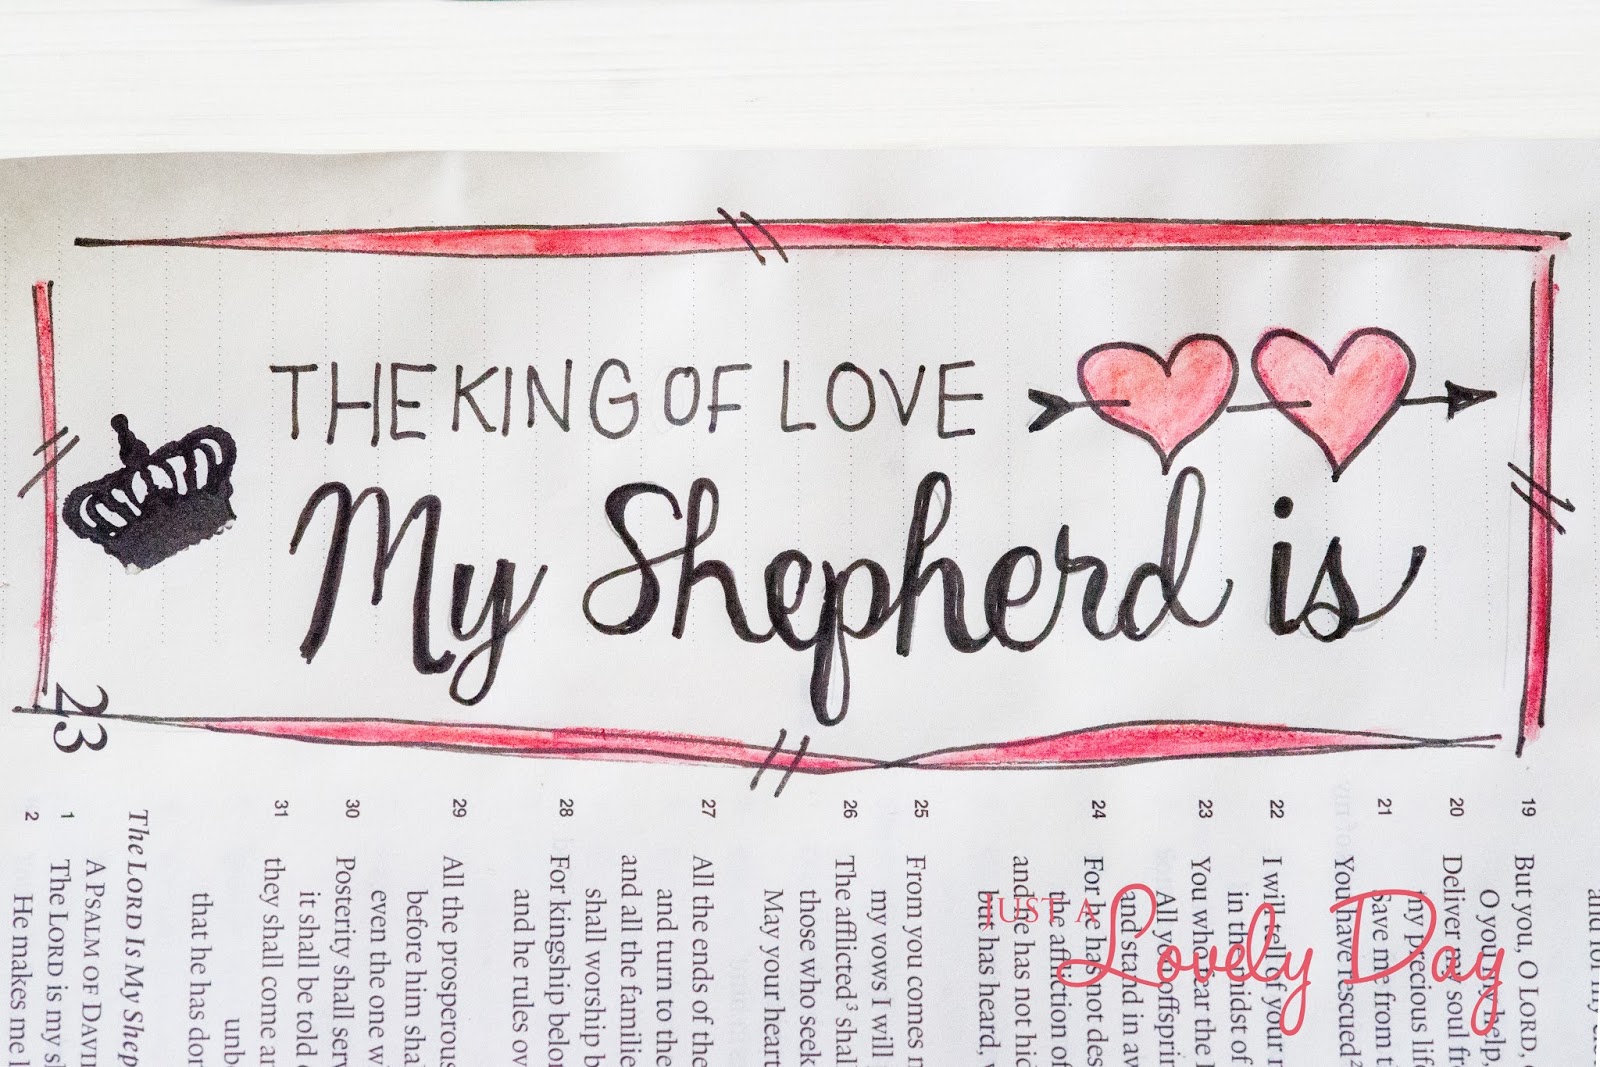 THE KING OF LOVE
My Shepherd is
19 But you, O LORD,
O you my help,
20 Deliver my soul fr
my precious life
21 Save me from t
You have rescued²
22 I will tell of your
in the midst of
23 You who fear the
All you offsprin
and stand in aw
24 For he has not des
the affliction of
and he has not hid
but has heard,
25 From you comes
my vows I will
26 The afflicted³ shal
those who seek
May your heart
27 All the ends of the
and turn to the
and all the familie
shall worship b
28 For kingship belon
and he rules ov
29 All the prosperous
before him sha
even the one w
30 Posterity shall serv
it shall be told
31 they shall come an
that he has don
unb
The LORD Is My Shep
23
A PSALM OF DAVID
1 The LORD is my sh
2 He makes me l
JUST A
Lovely Day